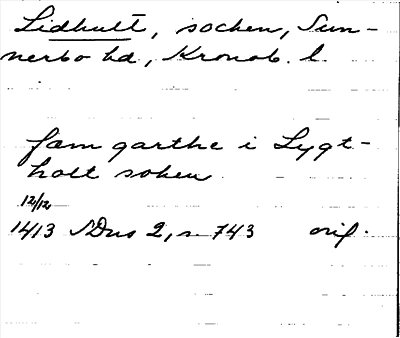 Lidhult, socken, Sun-
nerbo hd, Kronob. l.
fæm garthe i Lygt-
holt soken
12/12
1413 SDns 2, s. 743 orig.